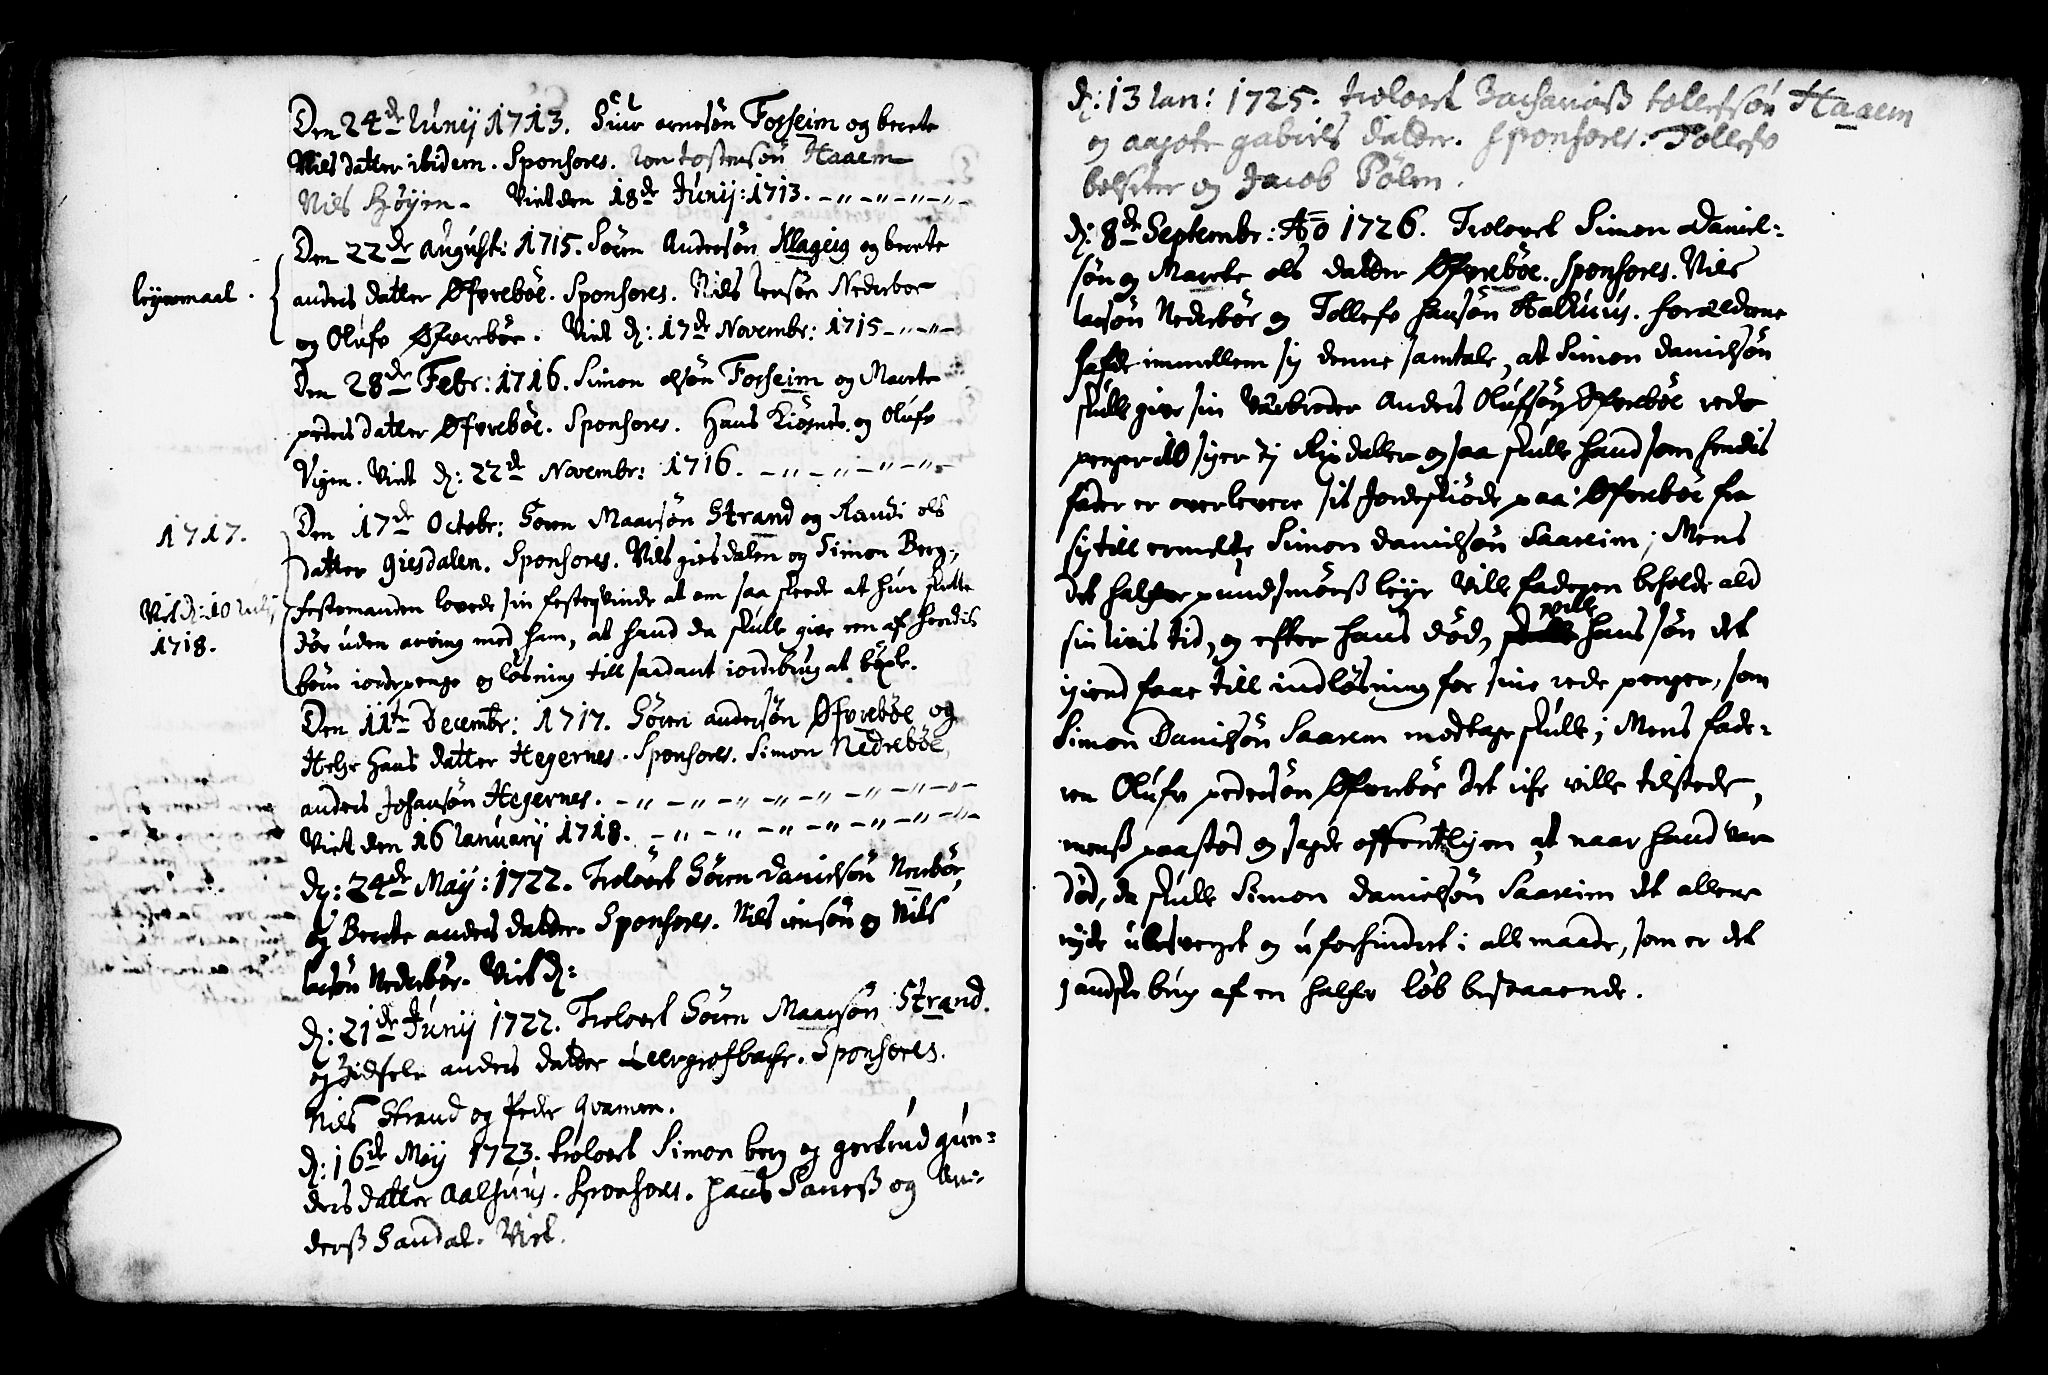 Den 24de Iunij 1713. Siur arnesøn Forseim og berete
Nils datter ibidem. Sponsores. Ion tostensøn Haaem
Nils Høijen. Viet den 18de Junij: 1713.
Den 22de August: 1715. Søren Andersøn Klageig og berete
leijermaal.
anders datter Øfvrebøe. Sponsores. Nils Iensøn Nederbøe
og Oluf Øfvrebøe. Viet d: 17de Novembr: 1715
Den 28de Febr: 1716. Simon olsøn Forseim og Marete
peders datter Øfvrebøe. Sponsores. Hans Kiøsnes og Olufv
Vigen. Viet d: 22de Novembr: 1716.
1717.
Den 17de Octobr: Søren Maarsøn Strand og Randi ols
datter giesdalen. Sponsores. Nils giesdalen og Simon Berg,
Viet d: 10 Iulij
1718.
festemanden lovede sin festeqvinde at om saa skeede at hun skulle
døe uden arving med ham, at hand da skulle give een af hendis
børn iordepenge og løsning till saadant iordebrug at bøxle.
Den 11te Decembr: 1717. Søren andersøn Øfvrebøe og
Helge Hans datter Hegernes. Sponsores. Simon Nedrebøe,
anders Johansøn Hegernes.
Viet den 16 Ianuarij 1718.
d: 24de Maij: 1722. Trolovet Søren Danielsøn Nerebøe
og Berete anders datter. Sponsores. Nils iensøn og Nils
larsøn Nederbøe. Viet d:
d: 21de Junij 1722. Trolovet Søren Maarsøn Strand.
og Sidsele anders datter Sponsores.
Nils Strand og Peder qvamen.
d: 16de Maij 1723. trolovet Simon berg og gertrud gun-
ders datter Aalhuus. Sponsores. Hans Sanesß og An-
derß Sandal. Viet.
d: 13 Ian: 1725. trolovet Zachariaß tollefsøn Haaem
og aagote gabriels datter. Sponsores: Tollefv
belseter og Jacob Pølen.
d: 8de Septembr: Ao 1726. Trolovet Simon Daniel-
søn og Marete ols datter Øfvrebøe. Sponsores. Nils
larsøn Nederbøe og Tollefv Hansøn Aalhuus. Forældrene
hafde immellem sig denne samtale, at Simon danielsøn
skulle give sin Anders Olufsøn Øfvrebøe rede
penger 40 siger ty Rixdaller og saa skulle hand som hendis
fader er overlevere sit Jordeskiøde paa Øfvrebøe fra
sig till ermelte Simon danielsøn Saareim; Mens
det halfve pund smørß leije ville faderen beholde ald
sin livis tid, og efter hans død, ville hans søn det
igiend faae till indløsning for sine rede penger, som
Simon Danielsøn Saareim modtage skulle; Mens fade-
ren Olufv pedersøn Øfvrebøe det icke ville tilstede,
menß paastod og sagde offentligen at naar hand var
død, da skulle Simon danielsøn Saareim det allene
nyde ubesverget og uforhindret i alle maade, som er det
gandske brug af en halfv løb bestaaende.